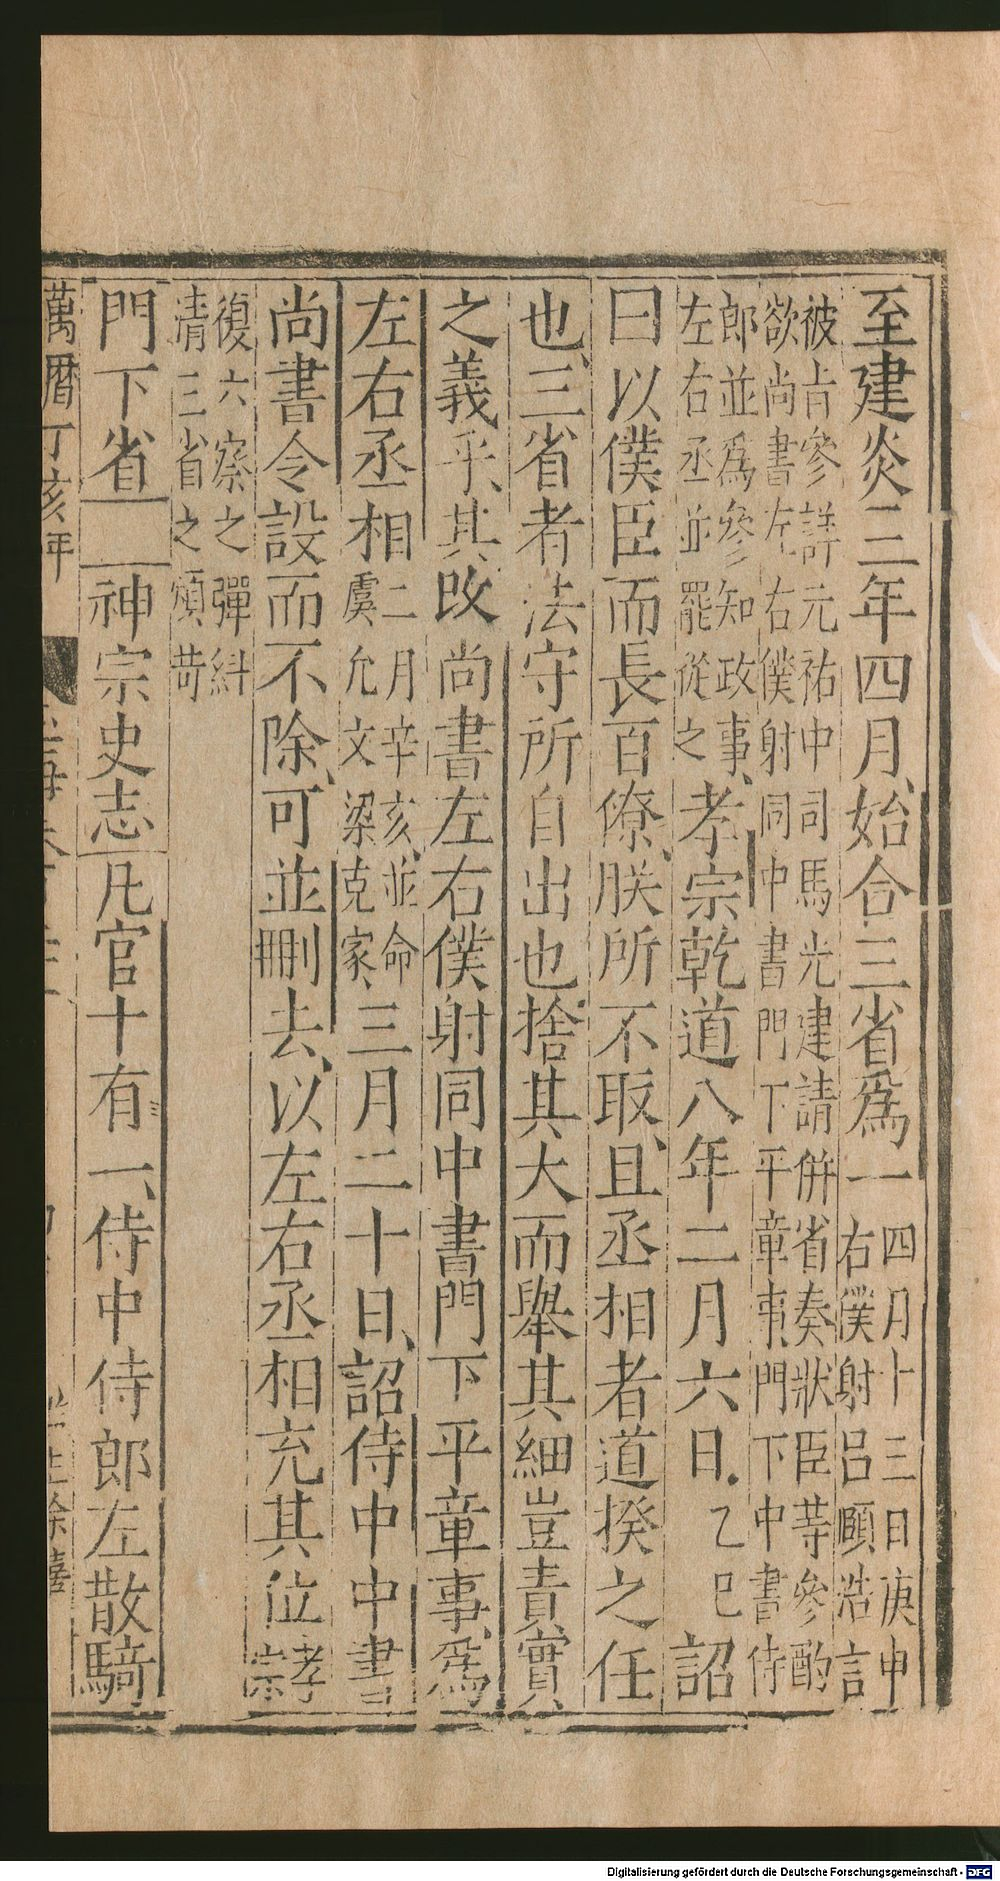 至建炎三年四月始合三省爲一四月十三日庚申
右僕射呂頤浩言
被旨參詳元祐中司馬光建請併省奏狀臣等參酌
欲尚書左右僕射同中書門下平章事門下中書侍
郎並爲參知政事
左右丞並罷從之孝宗乾道八年二月六日乙巳詔
曰以僕臣而長百僚朕所不取且丞相者道揆之任
也三省者法守所自出也捨其大而舉其細豈責實
之義乎其改尚書左右僕射同中書門下平章事爲
左右丞相二月辛亥並命
虞允文梁克家三月二十日詔侍中中書
尚書令設而不除可並刪去以左右丞相充其位孝
宗
復六察之彈糾
清三省之煩苛
門下省 神宗史志凡官十有一侍中侍郎左散騎
萬曆丁亥年
Digitalisierung gefördert durch die Deutsche Forschungsgemeinschaft - DFG